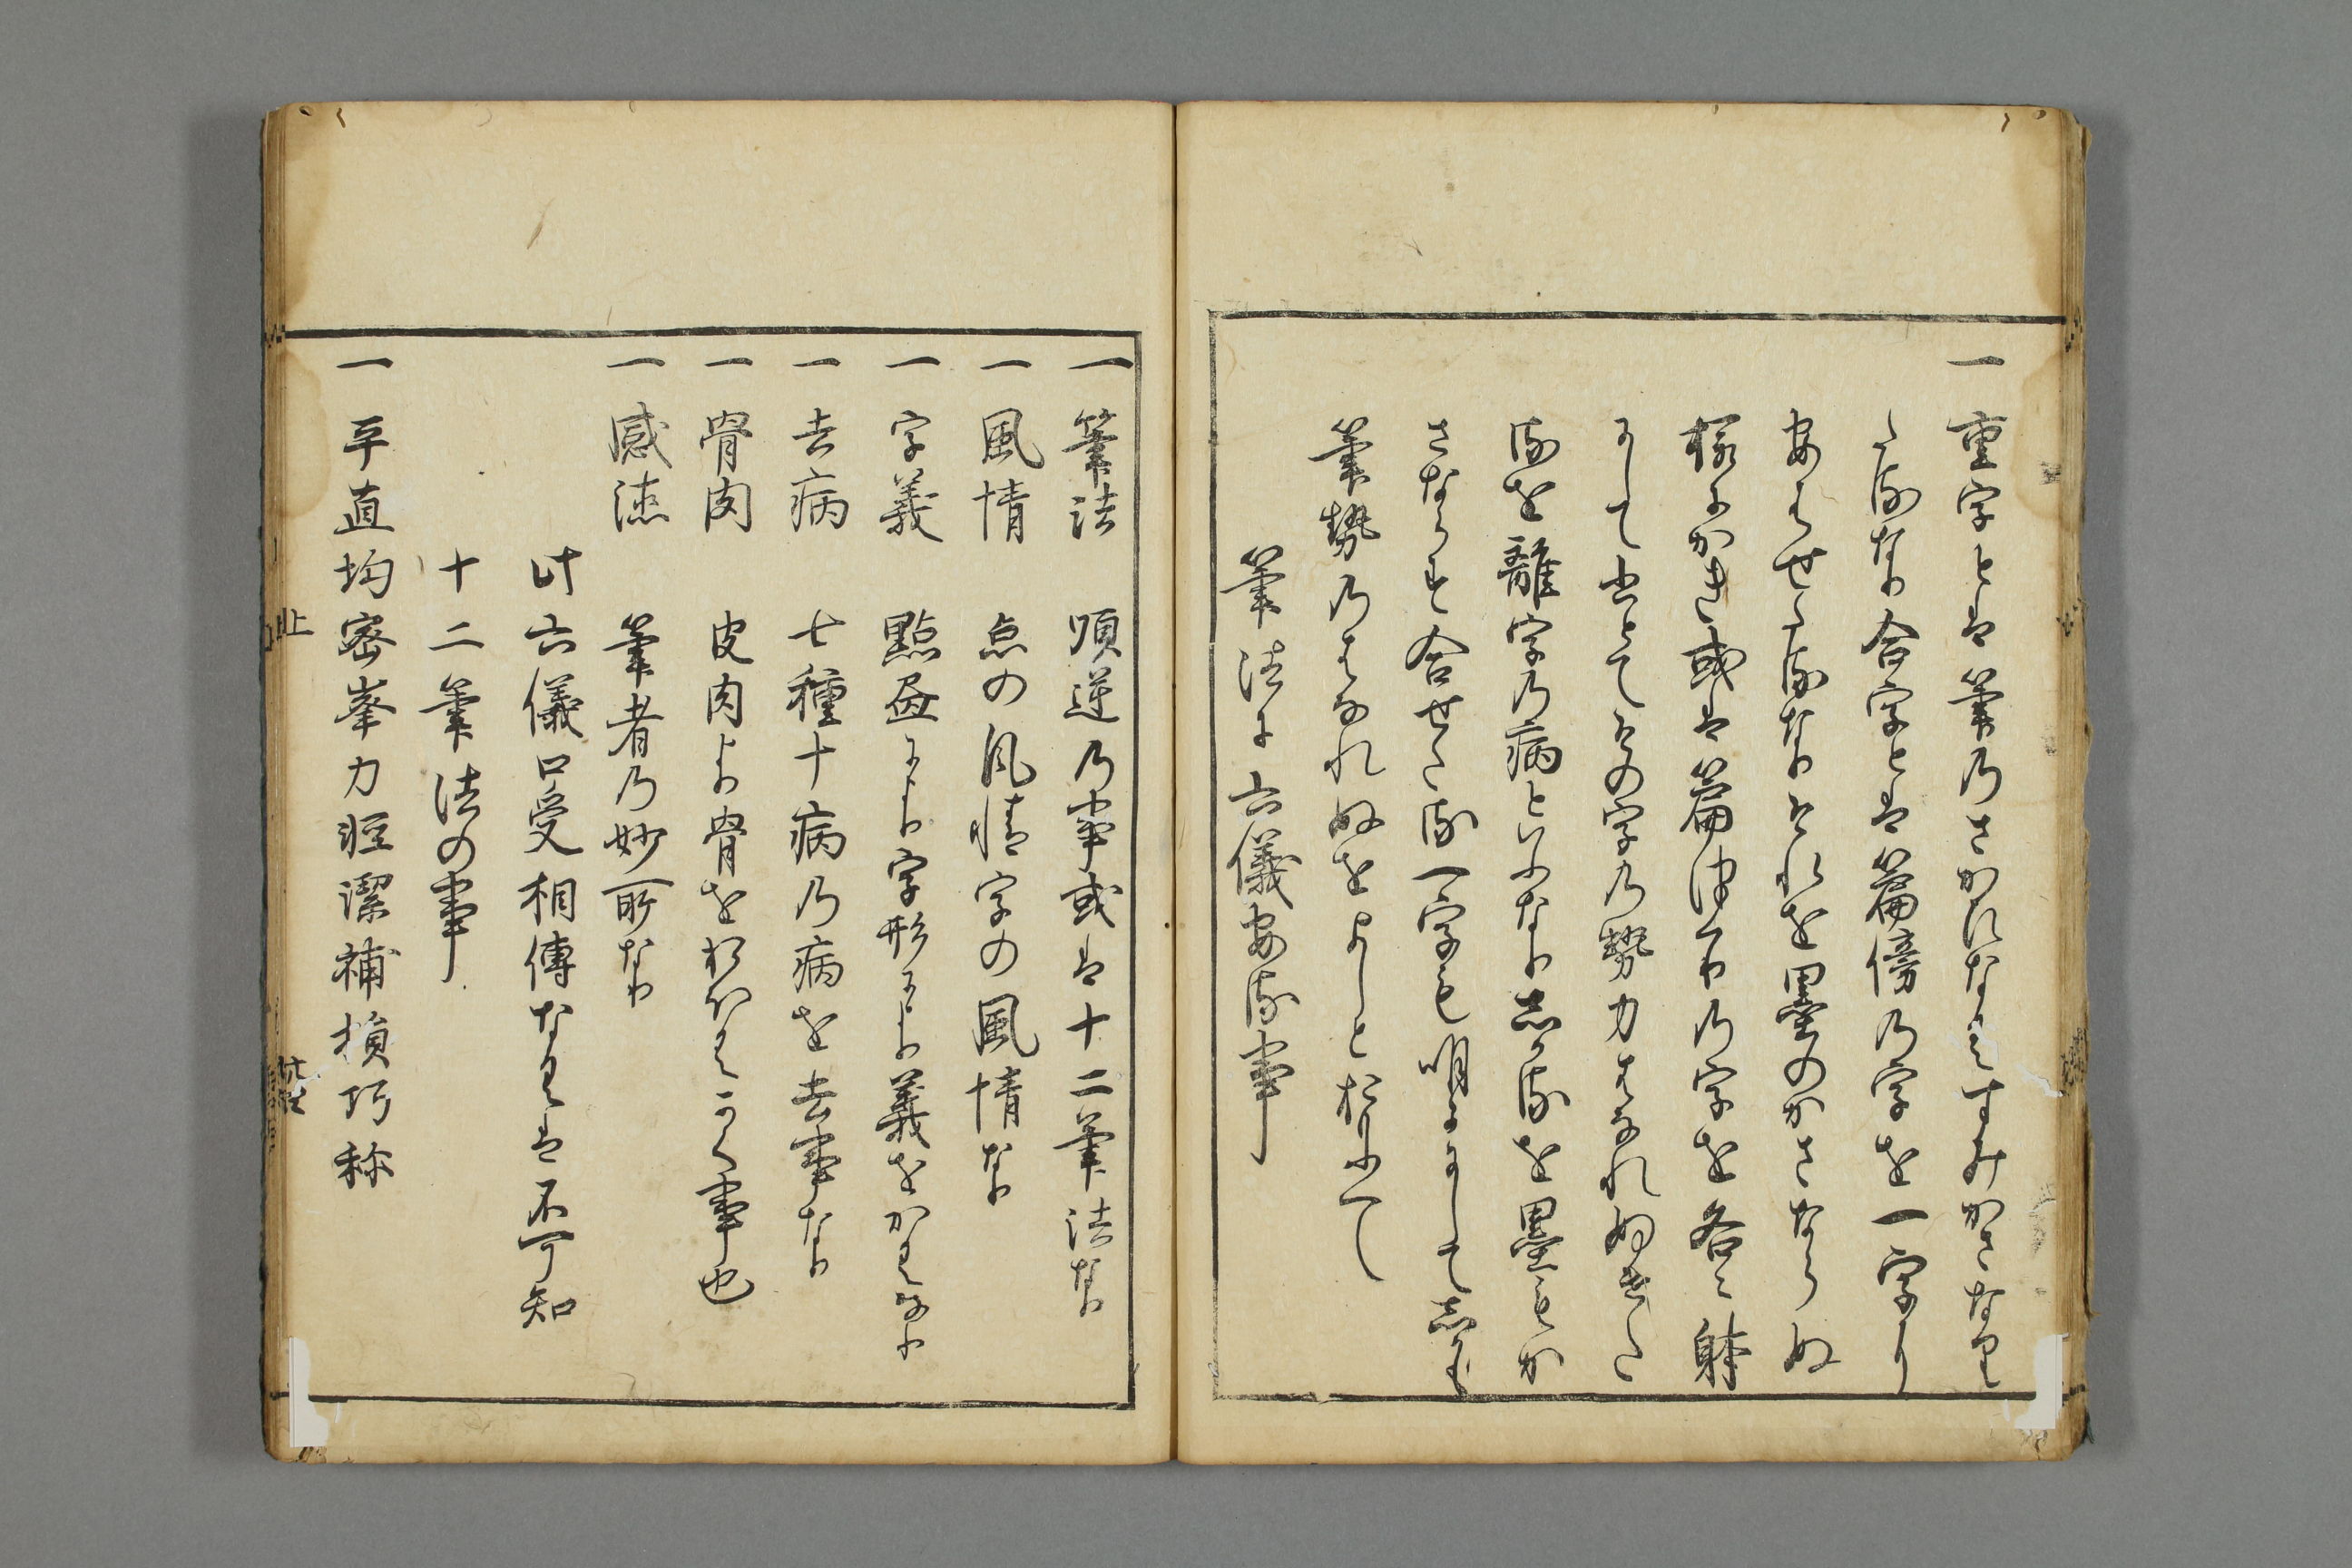 一 重字とは筆のさかひなくすみかさなり
たるなり合字とは篇傍の字を一字に
あはせたるなりそれを墨のかさならぬ
様にかき或は篇 の字を各々躰
にして書とてその字の勢力はなれぬきた
るを離字の病といふなりしかるを墨もか
さならす合せたる一字も明にして
筆勢のはなれぬをよしとおしへて
筆法に六儀ある事
一 筆法 順逆の事或は十二筆法なり
一 風情 点の風情字の風情なり
一 字義 點畫により字形により義をかくなり
一 去病 七種十病の病を去事なり
一 骨肉 皮肉より骨をおほくかく事也
一 感徳 筆者の妙所なり
此六儀口受相傳なくは不可知
十二筆法の事
一 平直均密峯力軽潔補損巧称